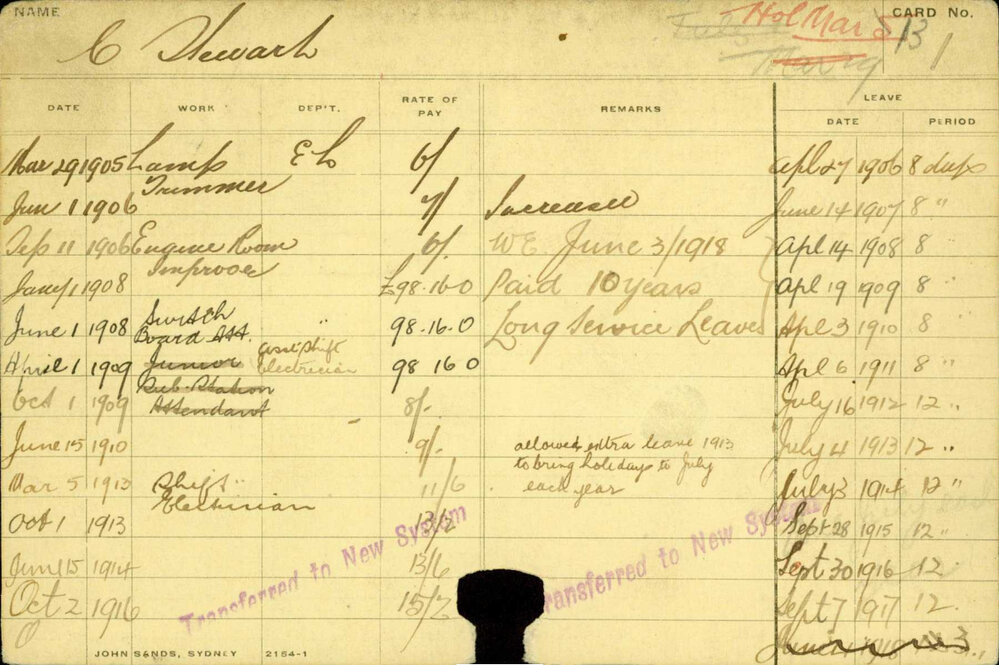 NAME
CARD No.
C Stewart
Hol Mar 5/13
1
DATE WORK DEP'T. RATE OF PAY REMARKS LEAVE
DATE PERIOD
Mar 29 1905 Lamp E L 6/ Apl 27 1906 8 days
Trimmer
Jun 1 1906 7/ Increased June 14 1907 8 "
Sep 11 1906 Engine Room 6/. WE June 3/1918 Apl 14 1908 8
Improver
Jany 1 1908 £98.16.0 Paid 10 years Apl 19 1909 8 "
June 1 1908 Switch " 98.16.0 Long Service Leave Apl 3 1910 8 "
Board Att.
April 1 1909 Junior Asst Shift Electrician 98 16 0 Apl 6 1911 8 "
Sub-Station
Oct 1 1909 Attendant 8/- July 16 1912 12 "
June 15 1910 9/- allowed extra leave 1913 July 4 1913 12 "
to bring holidays to July
Mar 5 1913 Shift " 11/6 each year July 3 1914 12 "
Electrician
Oct 1 1913 13/2 Sept 28 1915 12 "
June 15 1914 13/6 Sept 30 1916 12
Oct 2 1916 15/2 Sept 7 1917 12.
Transferred to New System
Transferred to New System
JOHN SANDS, SYDNEY 2154-1